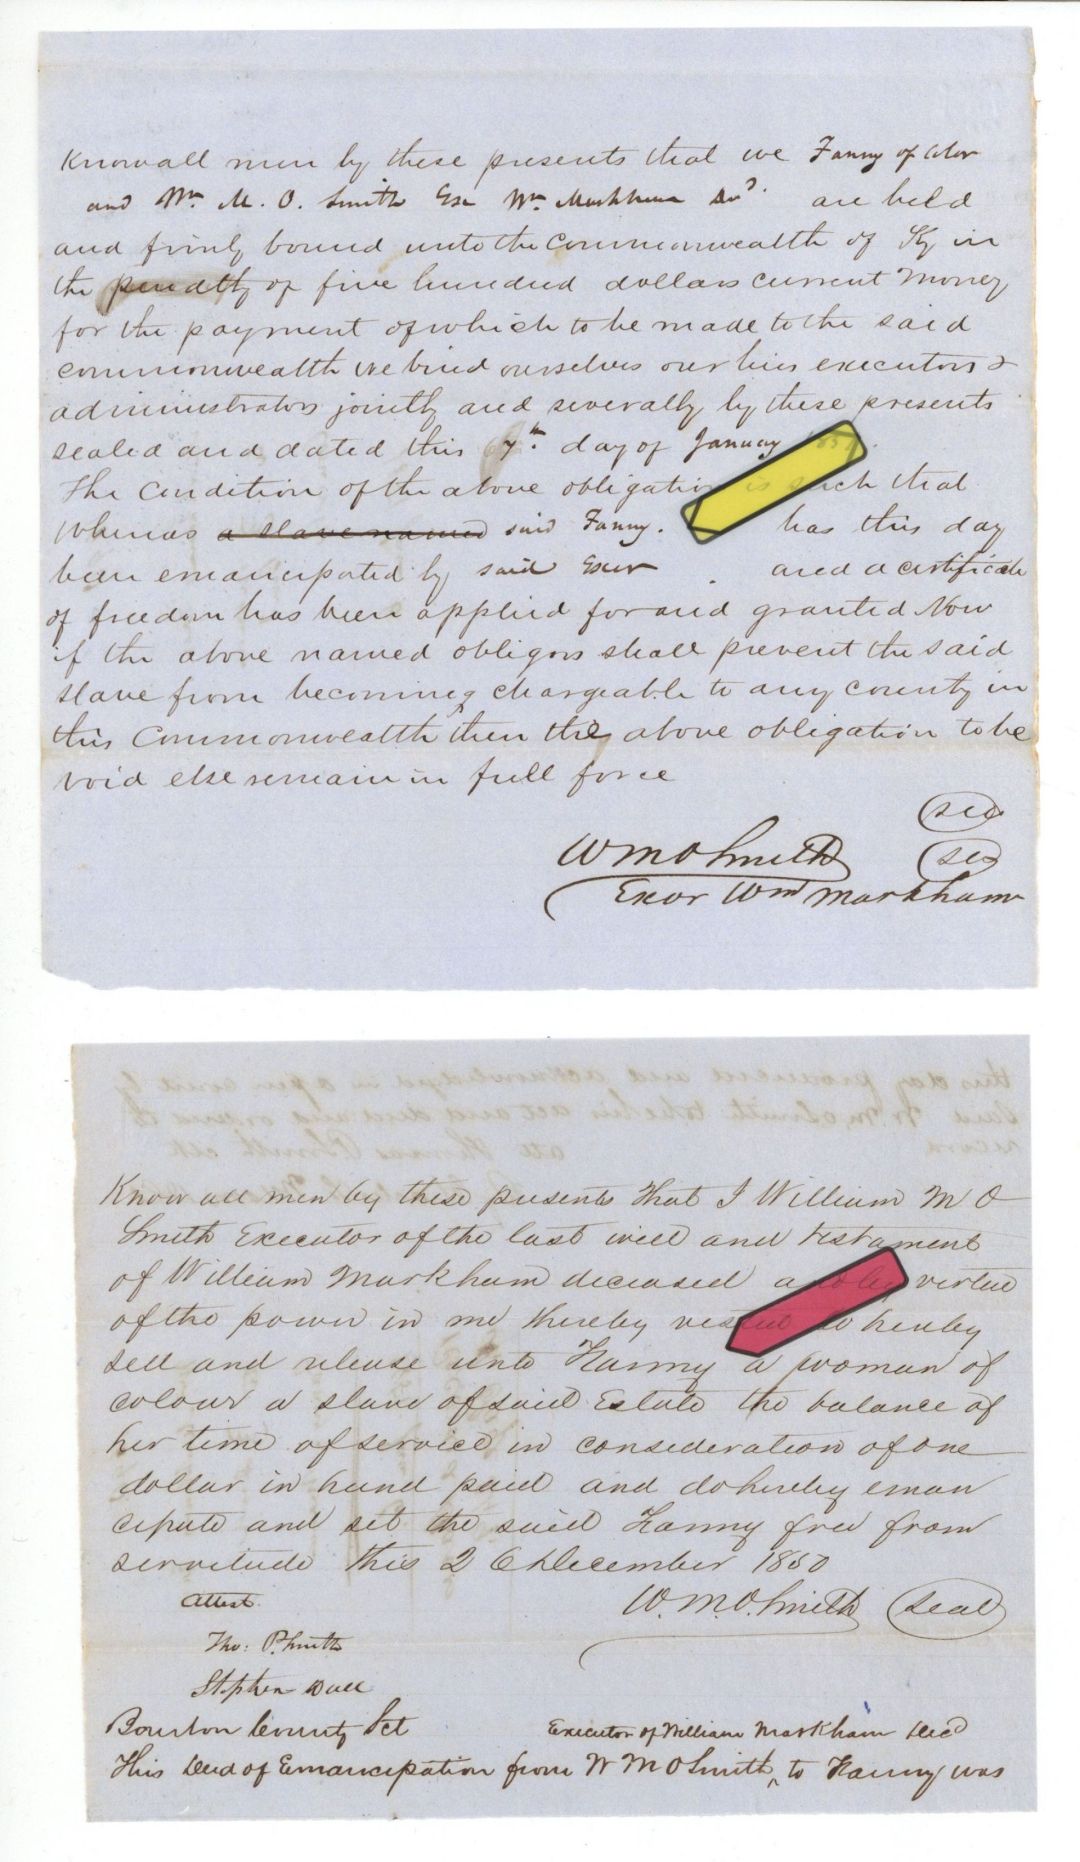 Know all men by these presents that we Fanny of Color
and Wm M. O. Smith Exr Wm Markham Decd. are held
and firmly bound unto the commonwealth of Ky in
the penalty of five hundred dollars current Money
for the payment of which to be made to the said
commonwealth we bind ourselves our heirs executors &
administrators jointly and severally by these presents
sealed and dated this 7th day of January
The Condition of the above obligation is such that
Whereas a slave named said Fanny. has this day
been emancipated by said Exor and a certificate
of freedom has been applied for and granted Now
if the above named obligors shall prevent the said
slave from becoming chargeable to any county in
this Commonwealth then the above obligation to be
void else remain in full force
W M O Smith
Exor Wm Markham
this day produced and acknowledged in open court by
said W. M. O Smith to be his act and deed and ordered to
record att Thomas P Smith clk
Know all men by these presents that I William M O
Smith Executor of the last will and testament
of William Markham deceased and by virtue
of the power in me thereby vested do hereby
sell and release unto Fanny a woman of
colour a slave of said Estate the balance of
her time of service in consideration of one
dollar in hand paid and do hereby eman
cipate and set the said Fanny free from
servitude this 26 December 1850
Attest W. M. O. Smith Seal
Tho: P. Smith
Stephen
Bourbon County Sct Executor of William Markham Decd
This Deed of Emancipation from W M O Smith ^ to Fanny was